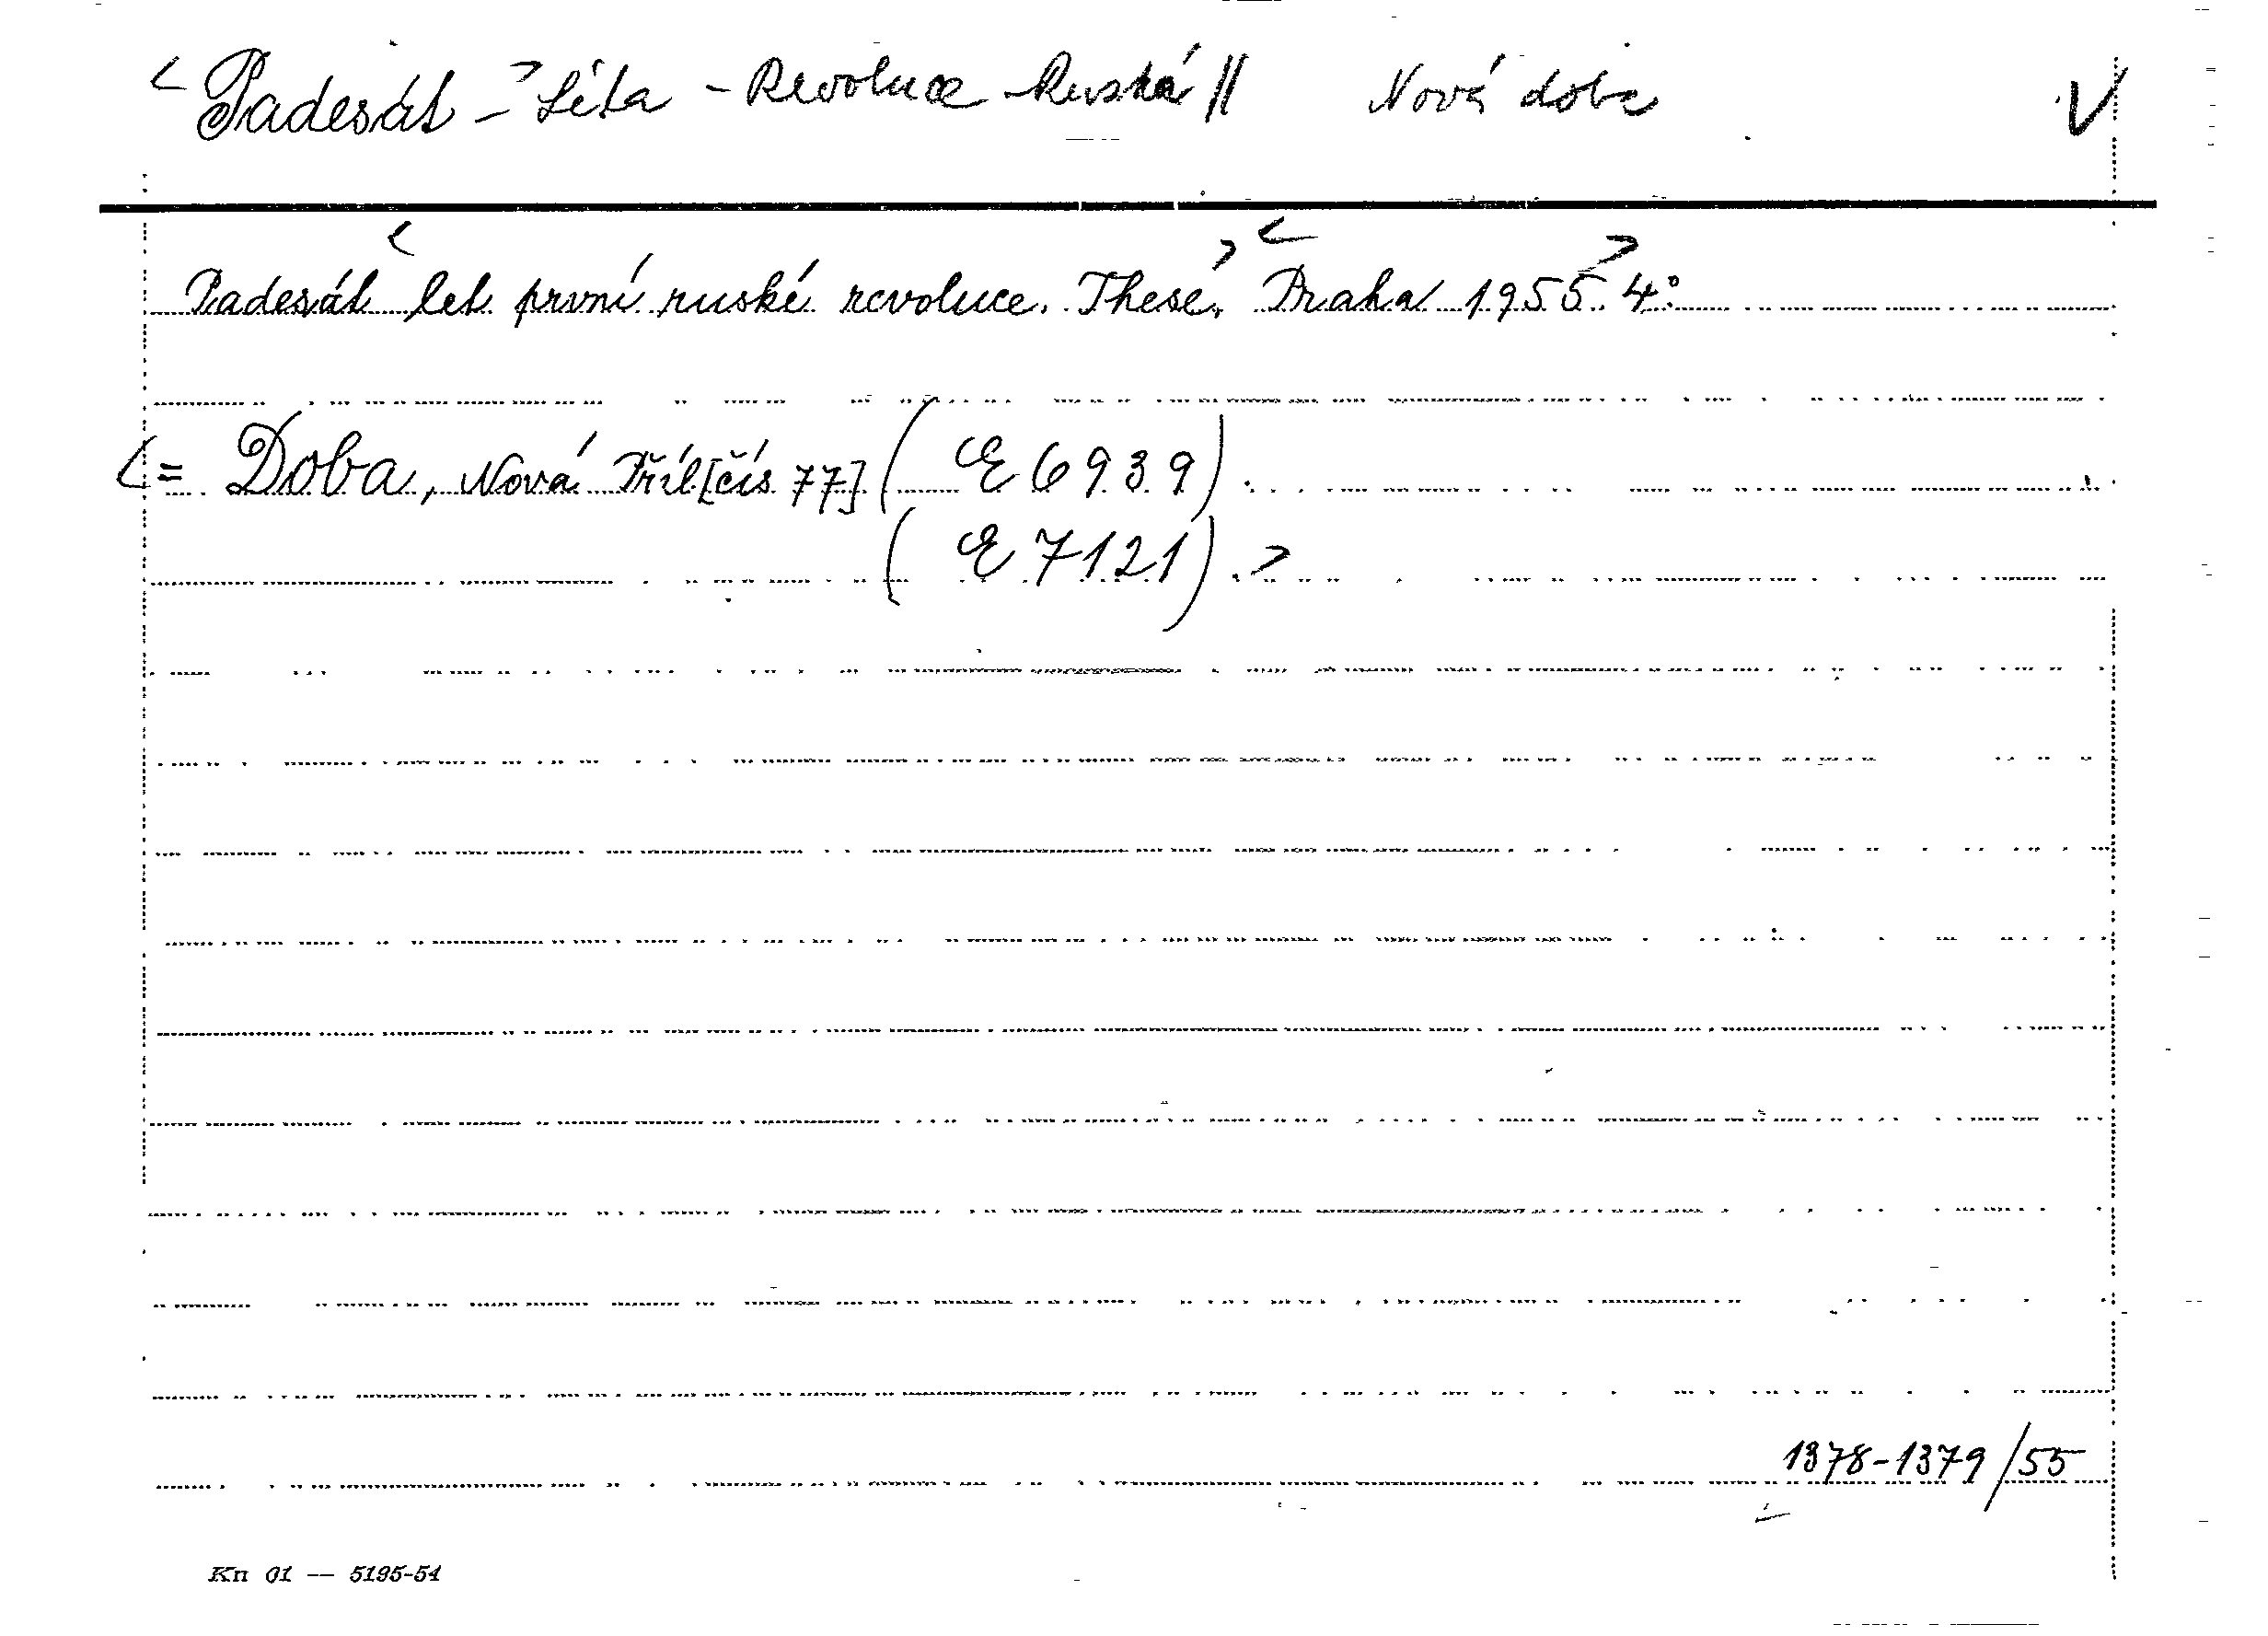 < Padesát - > Léta - Revoluce - Ruská || Nová doba V
< > < >
Padesát let první ruské revoluce. These. Praha 1955. 4°.
< = Doba, Nová Příl[čís 77] ( E 6939)
( E 7121). >
1378-1379/55
Kn 01 — 5195-54